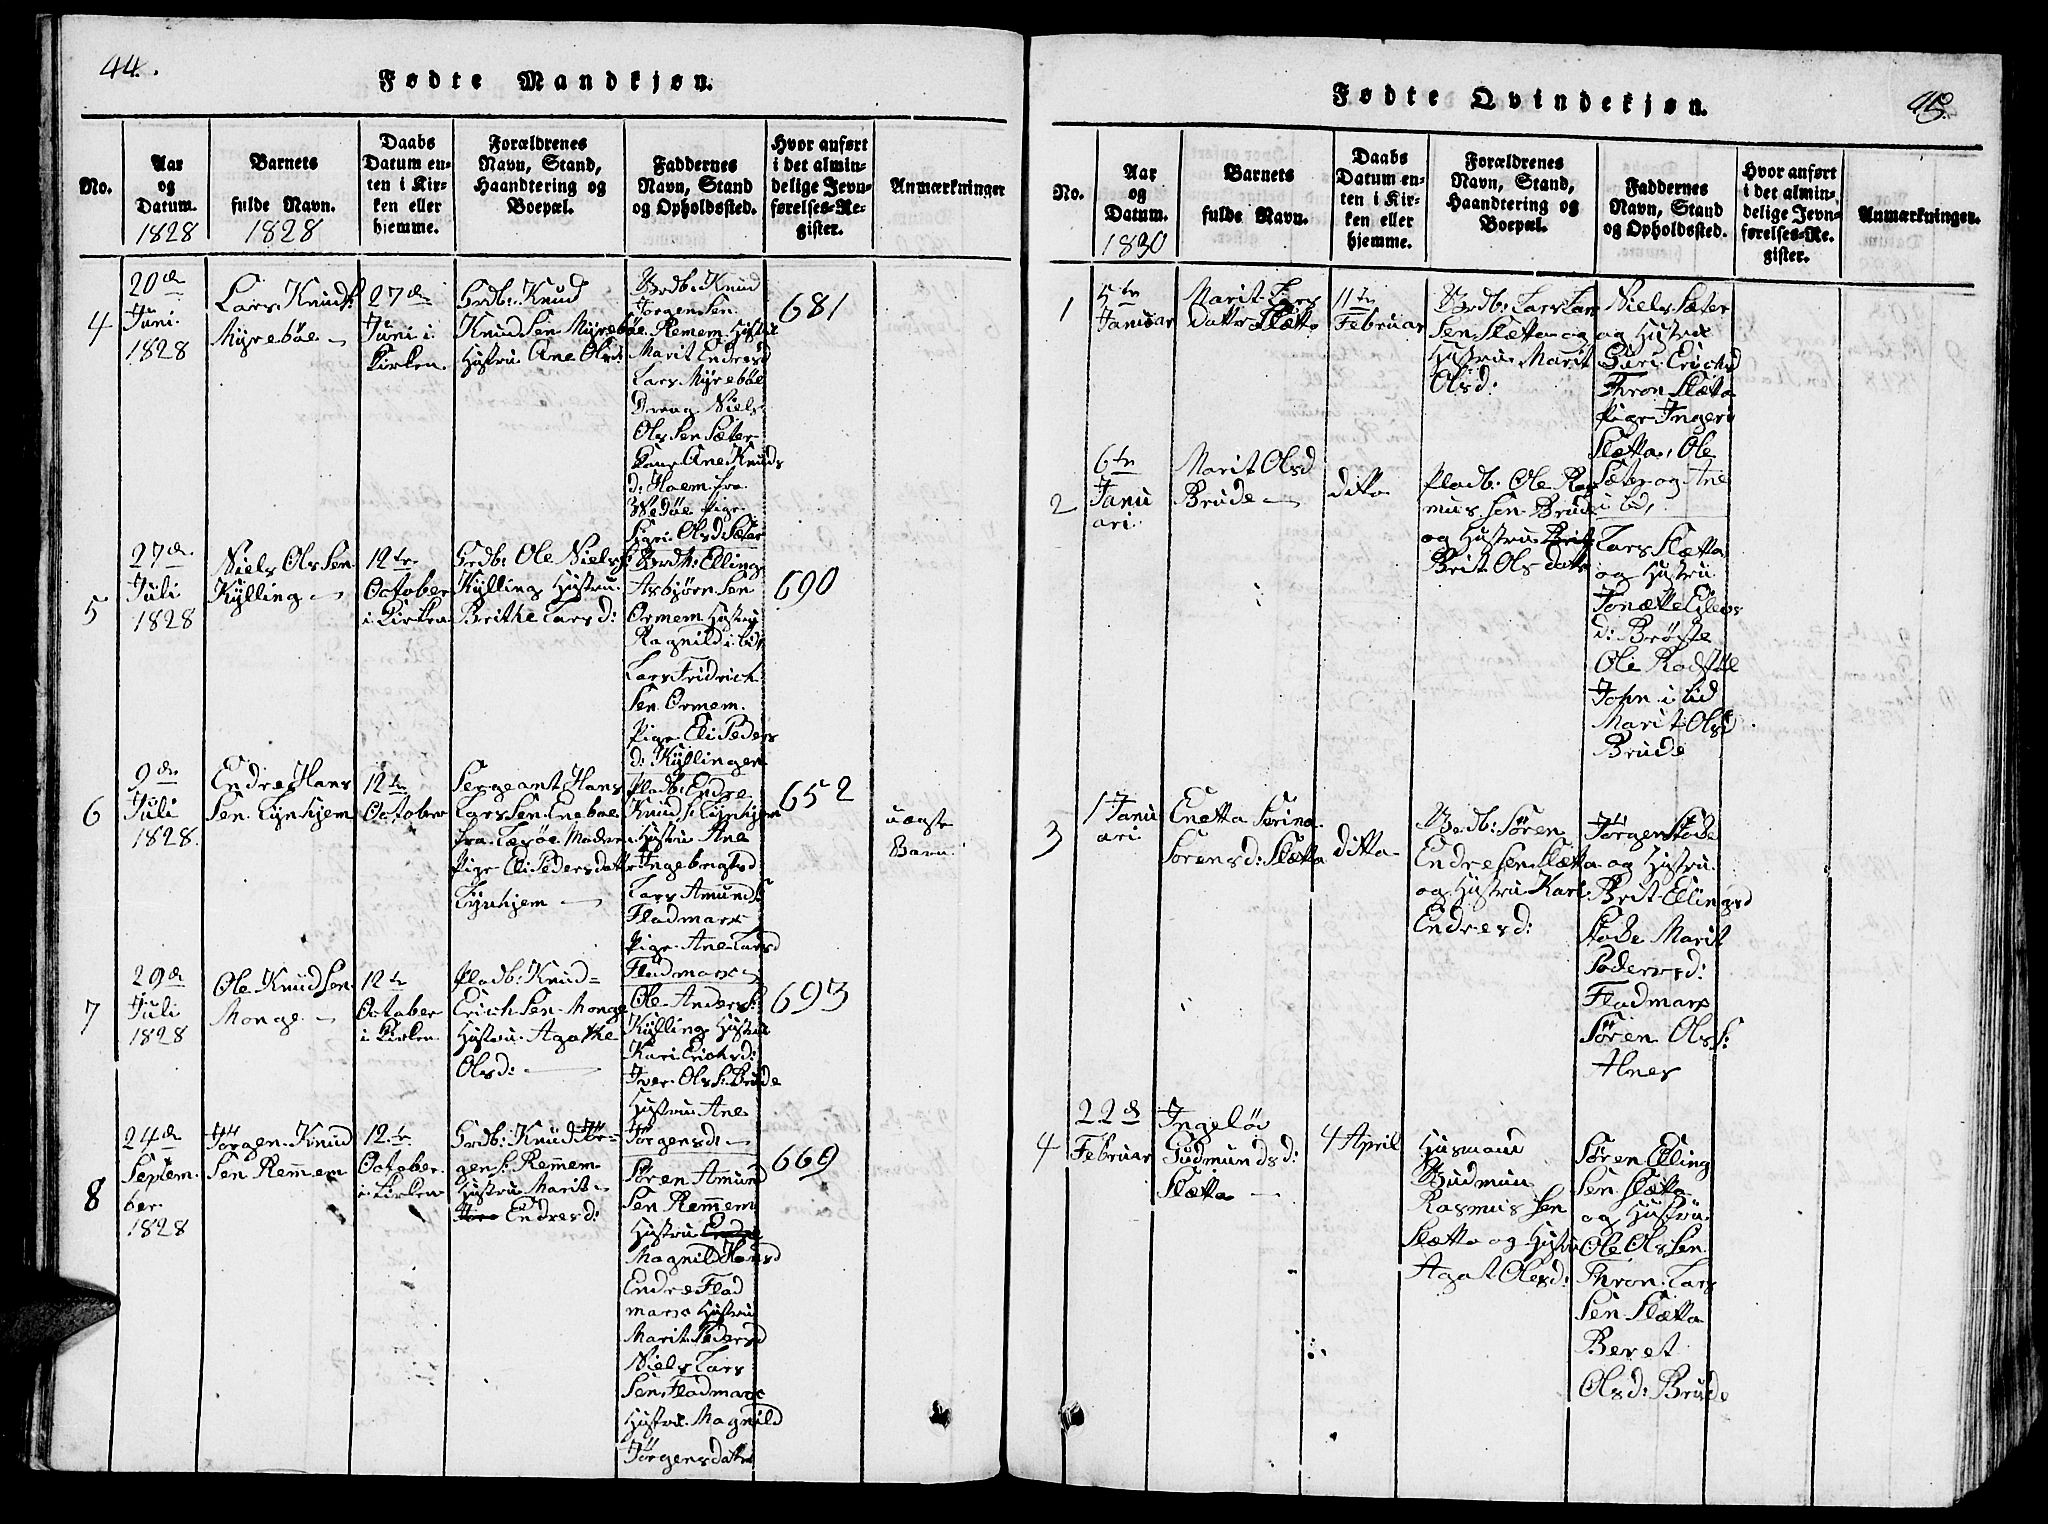 44.
Fødte Mandkjøn.
No.
Aar
og
Datum.
1828
Barnets
fulde Navn.
1828
Daabs
Datum en-
ten i Kir-
ken eller
hjemme.
Forældrenes
Navn, Stand,
Haandtering og
Boepæl.
Faddernes
Navn, Stand
og Opholdssted.
Hvor anført
i det almin-
delige Jevn-
førelses-Re-
gister.
Anmærkninger
4
20de
Juni
1828
Lars Knuds:
Myrebøe
27de
Juni i
Kirken.
Grdb: Knud
Knudsen Myrebøe
Hustru Ane Olsd:
Grdb: Knud
Jørgensen
Remem Hustru
Marit Endresd
Lars Myrebøe
Dreng Niels
Olssen Sæter
Kone Ane Knuds
d: Haem fra
Vedøe Pige
Sigri Olsd Sæter
681
5
27de
Juli
1828
Niels Olssen
Kylling
12te
October
i Kirken
Grdb: Ole Nielss:
Kylling Hustru
Brithe Larsd:
Grdb: Elling
Asbjørnsen
Ormem Hustru
Ragnild i bid,
Lars Fridrich
sen Ormem.
Pige Eli Peders
d: Kyllingen
690
6
9de
Juli
1828.
Endre Hans
sen Lynhjem
12te
October
Sergeant Hans
Larssen Eneboe
fra Lesøe Moderen
Pige Eli Pedersdatter
Lynhjem
Pladb: Endre
Knuds: Lynhjem
Hustru Ane
Ingebrigtsd
Lars Amunds:
Fladmark
Pige Ane Larsd
Fladmark
652
uægte
Barn.
7
29de
Juli
1828
Ole Knudsen
Monge
12te
October
i Kirken
Pladb: Knud=
Erichsen Monge
Hustru Agathe
Olsd:
Ole Anders:
Kylling Hustru
Kari Erichsd:
Iver Olss: Brude
Hustru Ane
Jørgensd:
693
8
24de
Septem
ber
1828
Jørgen Knud
sen Remem
12te
October
i Kirken
Grdb: Knud Jør=
gens: Remem
Hustru Marit
Endresd:
Søren Amund
sen Remem
Hustru
Magnild Hansd
Endre Flad
mark Hustru
Marit Pedersd
Niels Lars
sen Fladmark
Hustru Magnild
Jørgensdatter
669
45.
Fødte Qvindekjøn.
No.
Aar
og
Datum.
1830
Barnets
fulde Navn.
Daabs
Datum en-
ten i Kir-
ken eller
hjemme.
Forældrenes
Navn, Stand,
Haandtering og
Boepæl.
Faddernes
Navn, Stand
og Opholdssted.
Hvor anført
i det almin-
delige Jevn-
førelses-Re-
gister.
Anmærkninger.
1
5te
Januar
Marit Lars
datter Slætta
11te
Februar
Grdb: Lars Lar
sen Sletta og
Hustru Marit
Olsd:
Niels Sæter
og Hustrue
Guri Erichsd
Thron Slætta
Pige Ingeri
Slætta, Ole
Sæter og Ane
i bid,
2
6te
Janu
ari.
Marit Olsd
Brude
ditto
Pladb: Ole Ras
mussen Brude
og Hustru
Brit Olsdatter
Lars Slætta
og Hustru
Jonætte Eilevs
d: Brøste
Ole Rødstøl
John i bid
Marit Olsd
Brude
3
1 Janu
ari
Enætta Sørina
Sorensd: Slætta
ditto
Grdb: Søren
Endresen Slætta
og Hustru Kari
Endresd:
Jørgen Støde
og Hustru
Brit Ellingsd
Støde Marit
Pedersd:
Fladmark
Søren Olss:
Alnes
4
22de
Februar
Ingeløv
Gudmundsd:
Slætta
4 April
Husmand
Gudmun
Rasmussen
Slætta og Hustru
Agat Olesd:
Søren Elling
sen Slætta
og Hustru
Ole Olssen
Thron Lars
sen Slætta
Beret
Olsd: Brude